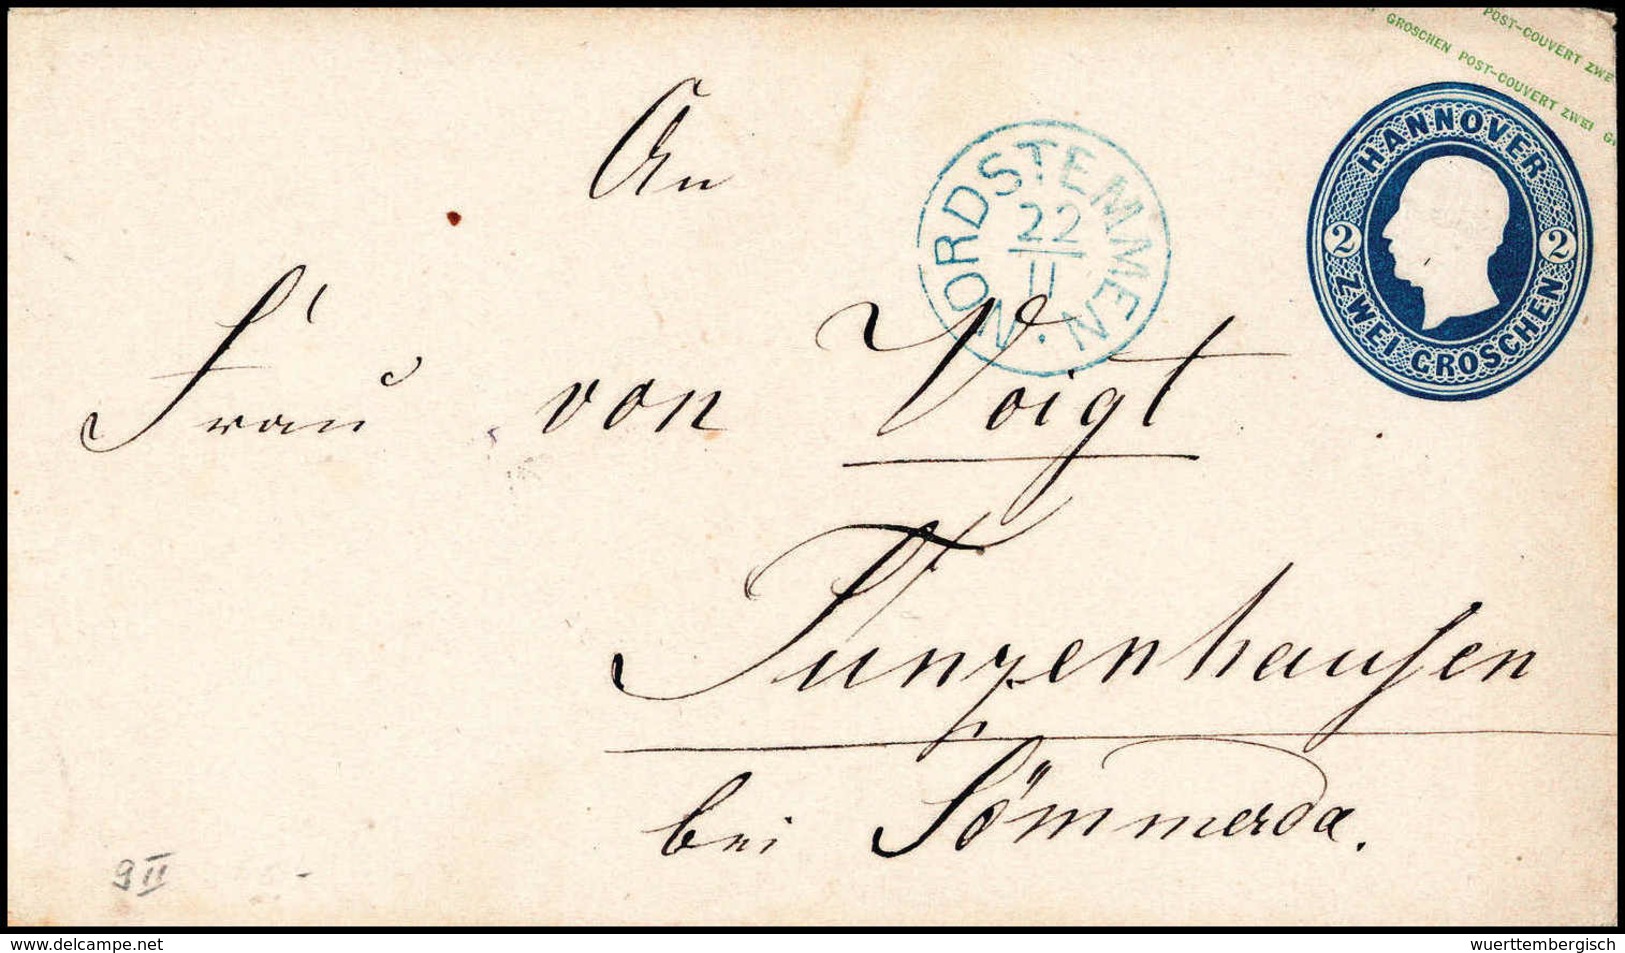 POST-COUVERT ZWE
GROSCHEN POST-COUVERT ZWEI G
HANNOVER
2 2
ZWEI GROSCHEN
NORDSTEMMEN
22
11
An
Frau von Voigt
Tunzenhausen
bei Sömmerda.
9 II
www.delcampe.net
wuerttembergisch